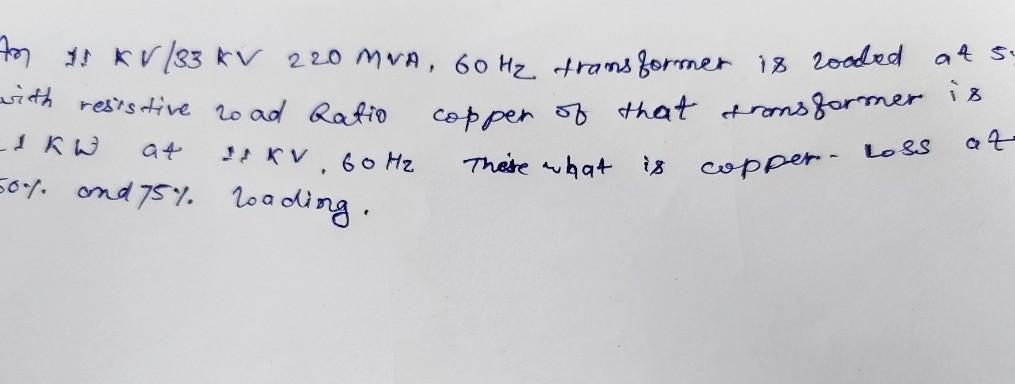 An 11 KV/33 KV 220 MVA, 60 Hz transformer is loaded at 5
with resistive load Ratio copper of that transformer is
1 KW at 11 KV, 60 Hz There what is copper- Loss at
50%. and 75%. loading.